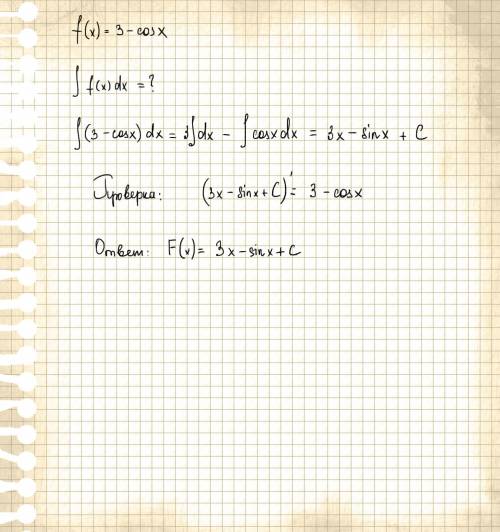 f(x) = 3 - cosx
∫ f(x) dx = ?
∫ (3 - cosx) dx = 3∫dx - ∫ cosx dx = 3x - sinx + C
Проверка: (3x - sinx + C)' = 3 - cosx
Ответ: F(x) = 3x - sinx + C